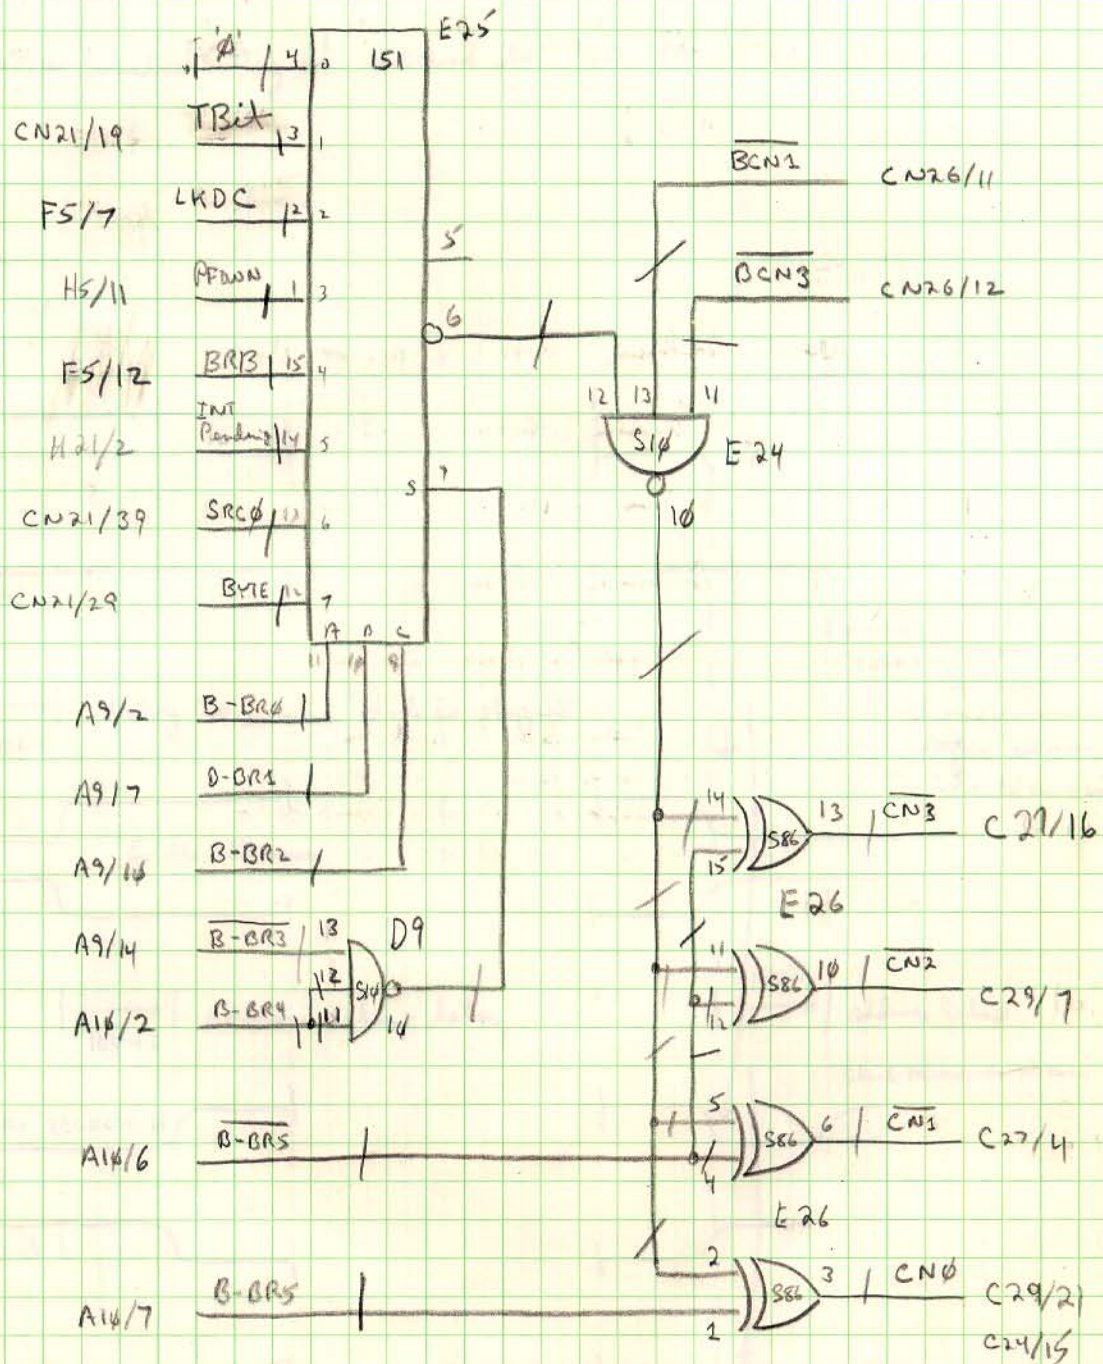 'ø' 4 0 151 E25
CN21/19 TBit 3 1
F5/7 LKDC 2 2
H5/11 PFDWN 1 3
F5/12 BRB 15 4
H21/2 INT Pending 14 5
CN21/39 SRCø 13 6
CN21/29 BYTE 12 7
5
6
S 7
A B C
11 1ø 9
A9/2 B-BRø
A9/7 B-BR1
A9/1ø B-BR2
A9/14 B-BR3 13 D9
12 S1ø
A1ø/2 B-BR4 11 1ø
A1ø/6 B-BR5
A1ø/7 B-BR5
BCN1 CN26/11
BCN3 CN26/12
12 13 11
S1ø E24
1ø
14 15 S86 13 CN3 C27/16
E26
11 12 S86 1ø CN2 C29/7
5 4 S86 6 CN1 C27/4
E26
2 1 S86 3 CNø C29/21
C24/15